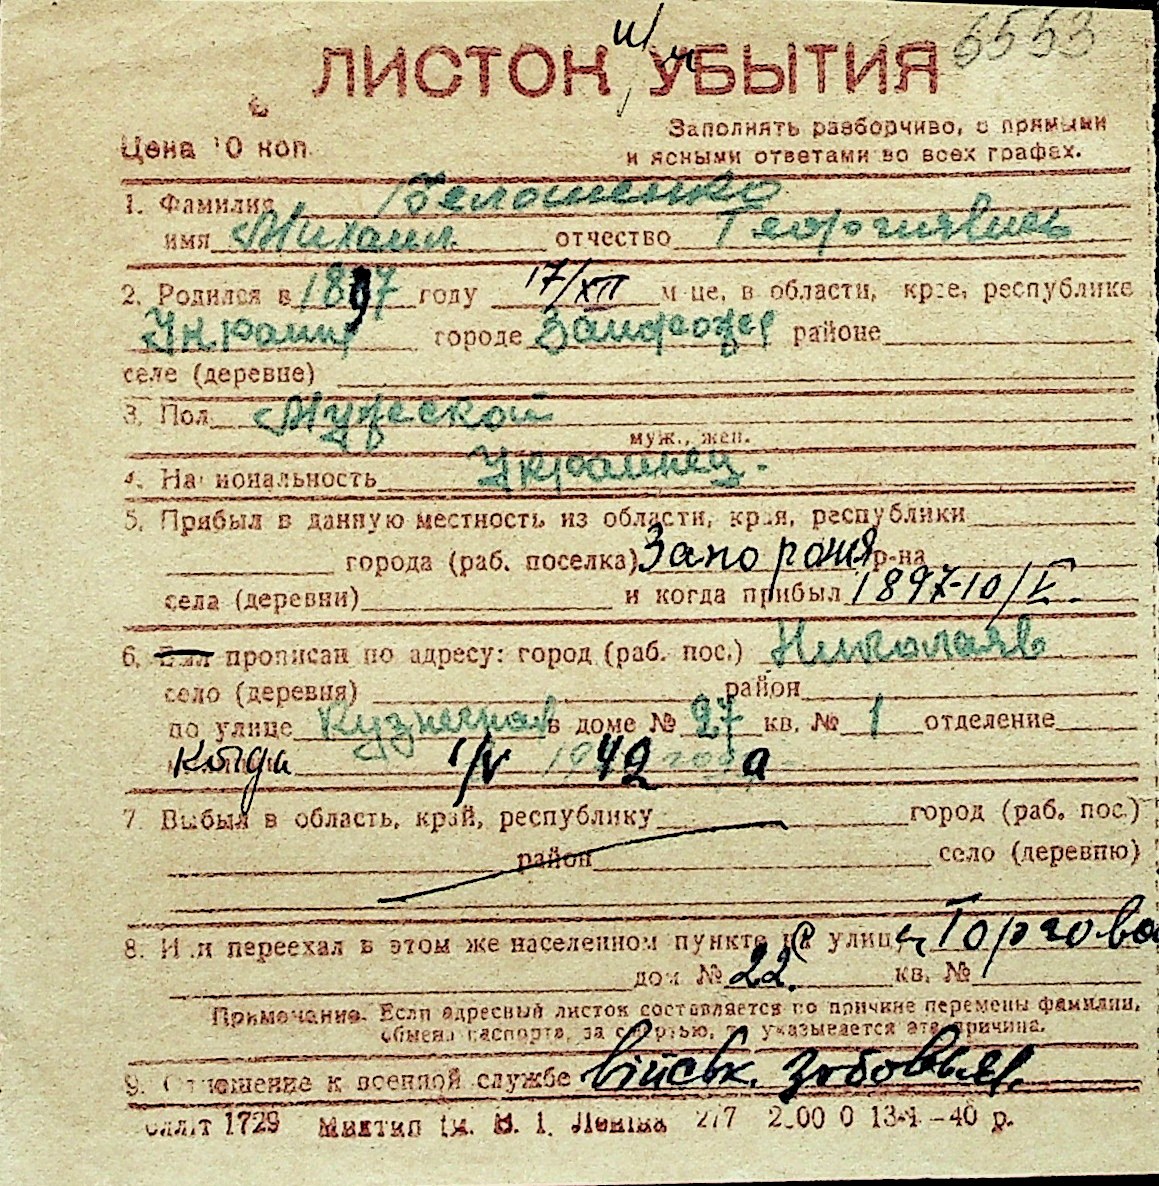 6553
ЛИСТОК УБЫТИЯ
Цена 10 коп.
Заполнять разборчиво, с прямыми
и ясными ответами во всех графах.
1. Фамилия Белошенко
имя Михаил отчество Георгиявич
2. Родился в 1897 году 17/XII м-це, в области, крае, республике
Украина городе Запорожя районе
селе (деревне)
3. Пол Мужеской
муж., жен.
4. Национальность Украинец.
5. Прибыл в данную местность из области, края, республики
города (раб. поселка) Запорожя р-на
села (деревни) и когда прибыл 1897-10/V.
6. Был прописан по адресу: город (раб. пос.) Николаяв
село (деревня) район
по улице в доме № 27 кв. № 1 отделение
Когда 1/V 1942 года
7. Выбыл в область, край, республику город (раб. пос.)
район село (деревню)
8. Или переехал в этом же населенном пункте на улицу Торгова
дом № 22. кв. №
Примечание. Если адресный листок составляется по причине перемены фамилии,
обмена паспорта, за смертью, то указывается эта причина.
9. Отношение к военной службе військ. зобовъяз.
1729 Миктип ім. В. І. Леніна 277 13-1-40 р.